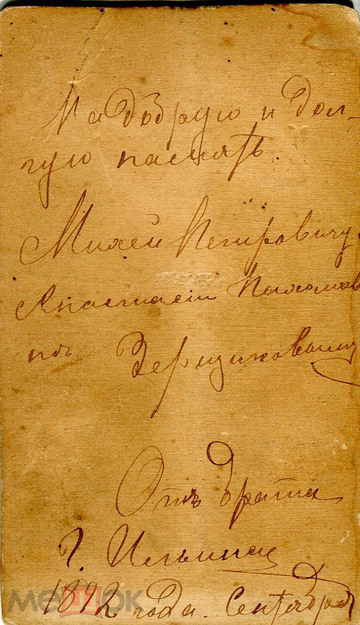 На добрую и дол-
гую память.
Михею Петровичу
Анастасіи Пахомов
нѣ Зерщиковымъ
Отъ брата
Г. Ильина
1892 года. Сентября
мешок